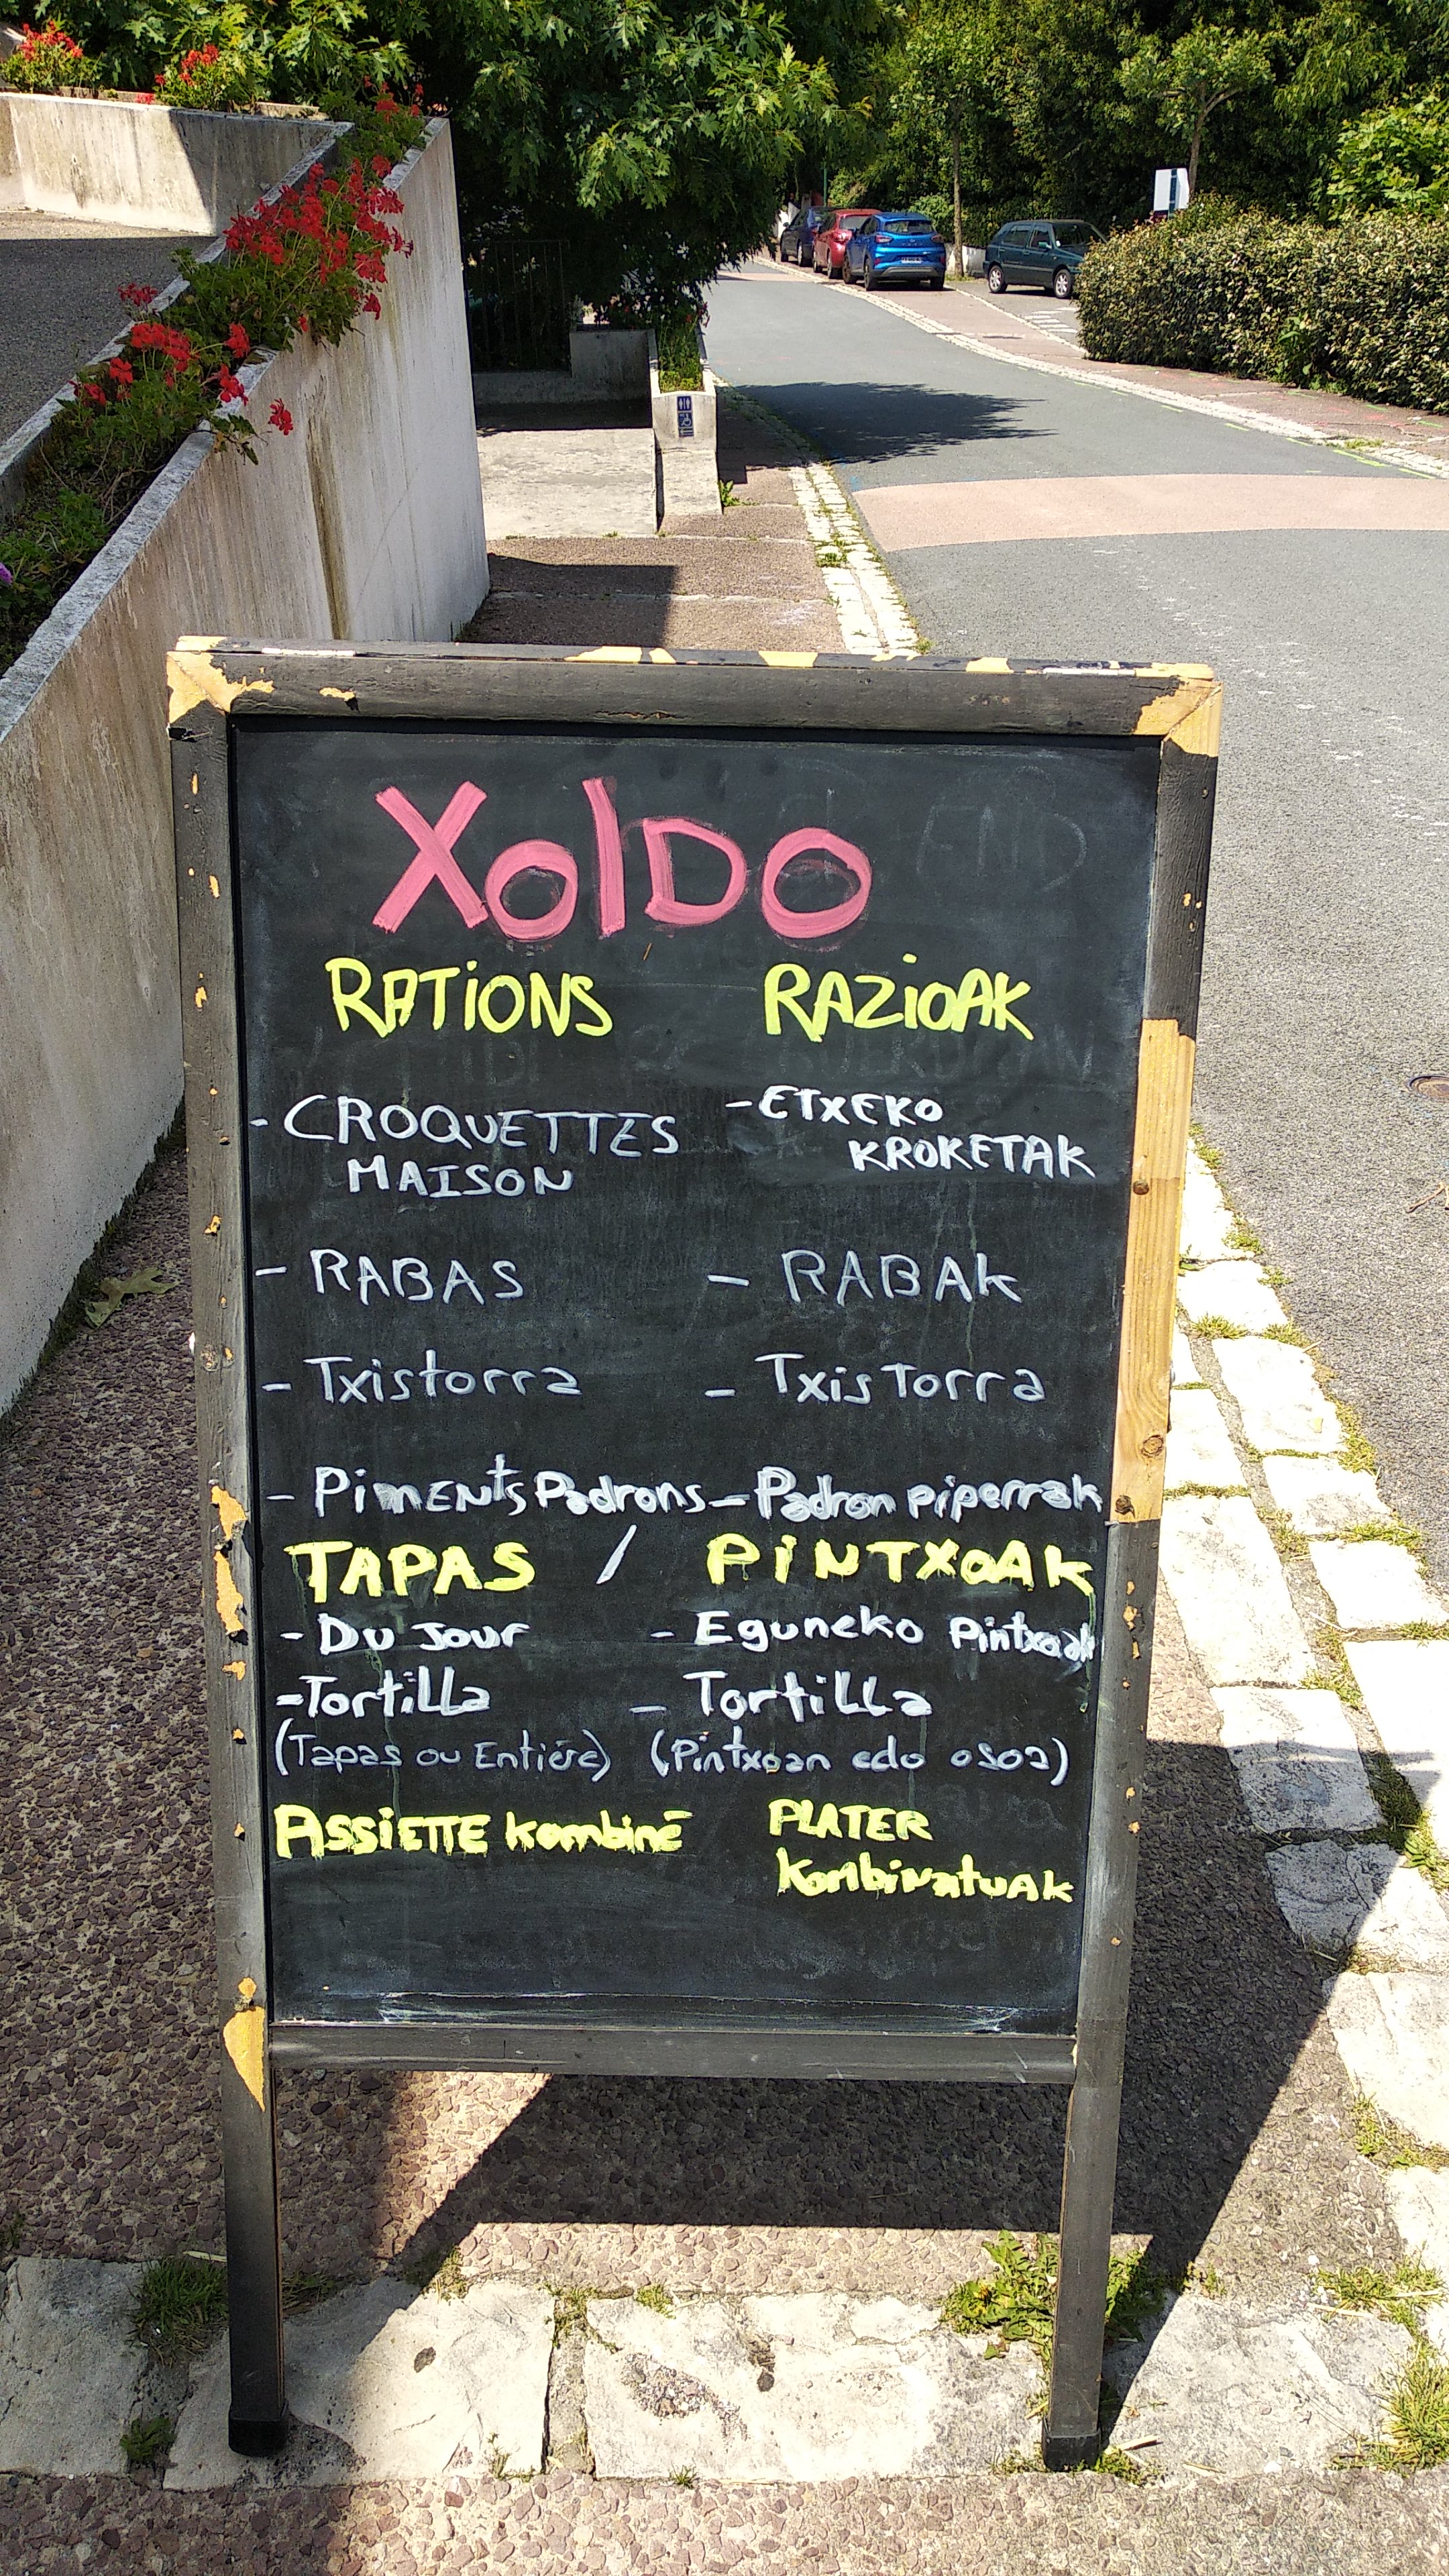 XolDo
RATiONS RAZiOAK
- CROQUETTES - ETXEKO
MAISON KROKETAK
- RABAS - RABAK
- Txistorra - TxisTorra
- PimENts Padrons - Padron piperrak
TAPAS / PiNTXOAK
- Du Jour - Eguneko Pintxoak
- Tortilla - Tortilla
(Tapas ou Entière) (Pintxoan edo osoa)
ASSiETTE kombiné PLATER
kombinatuAk